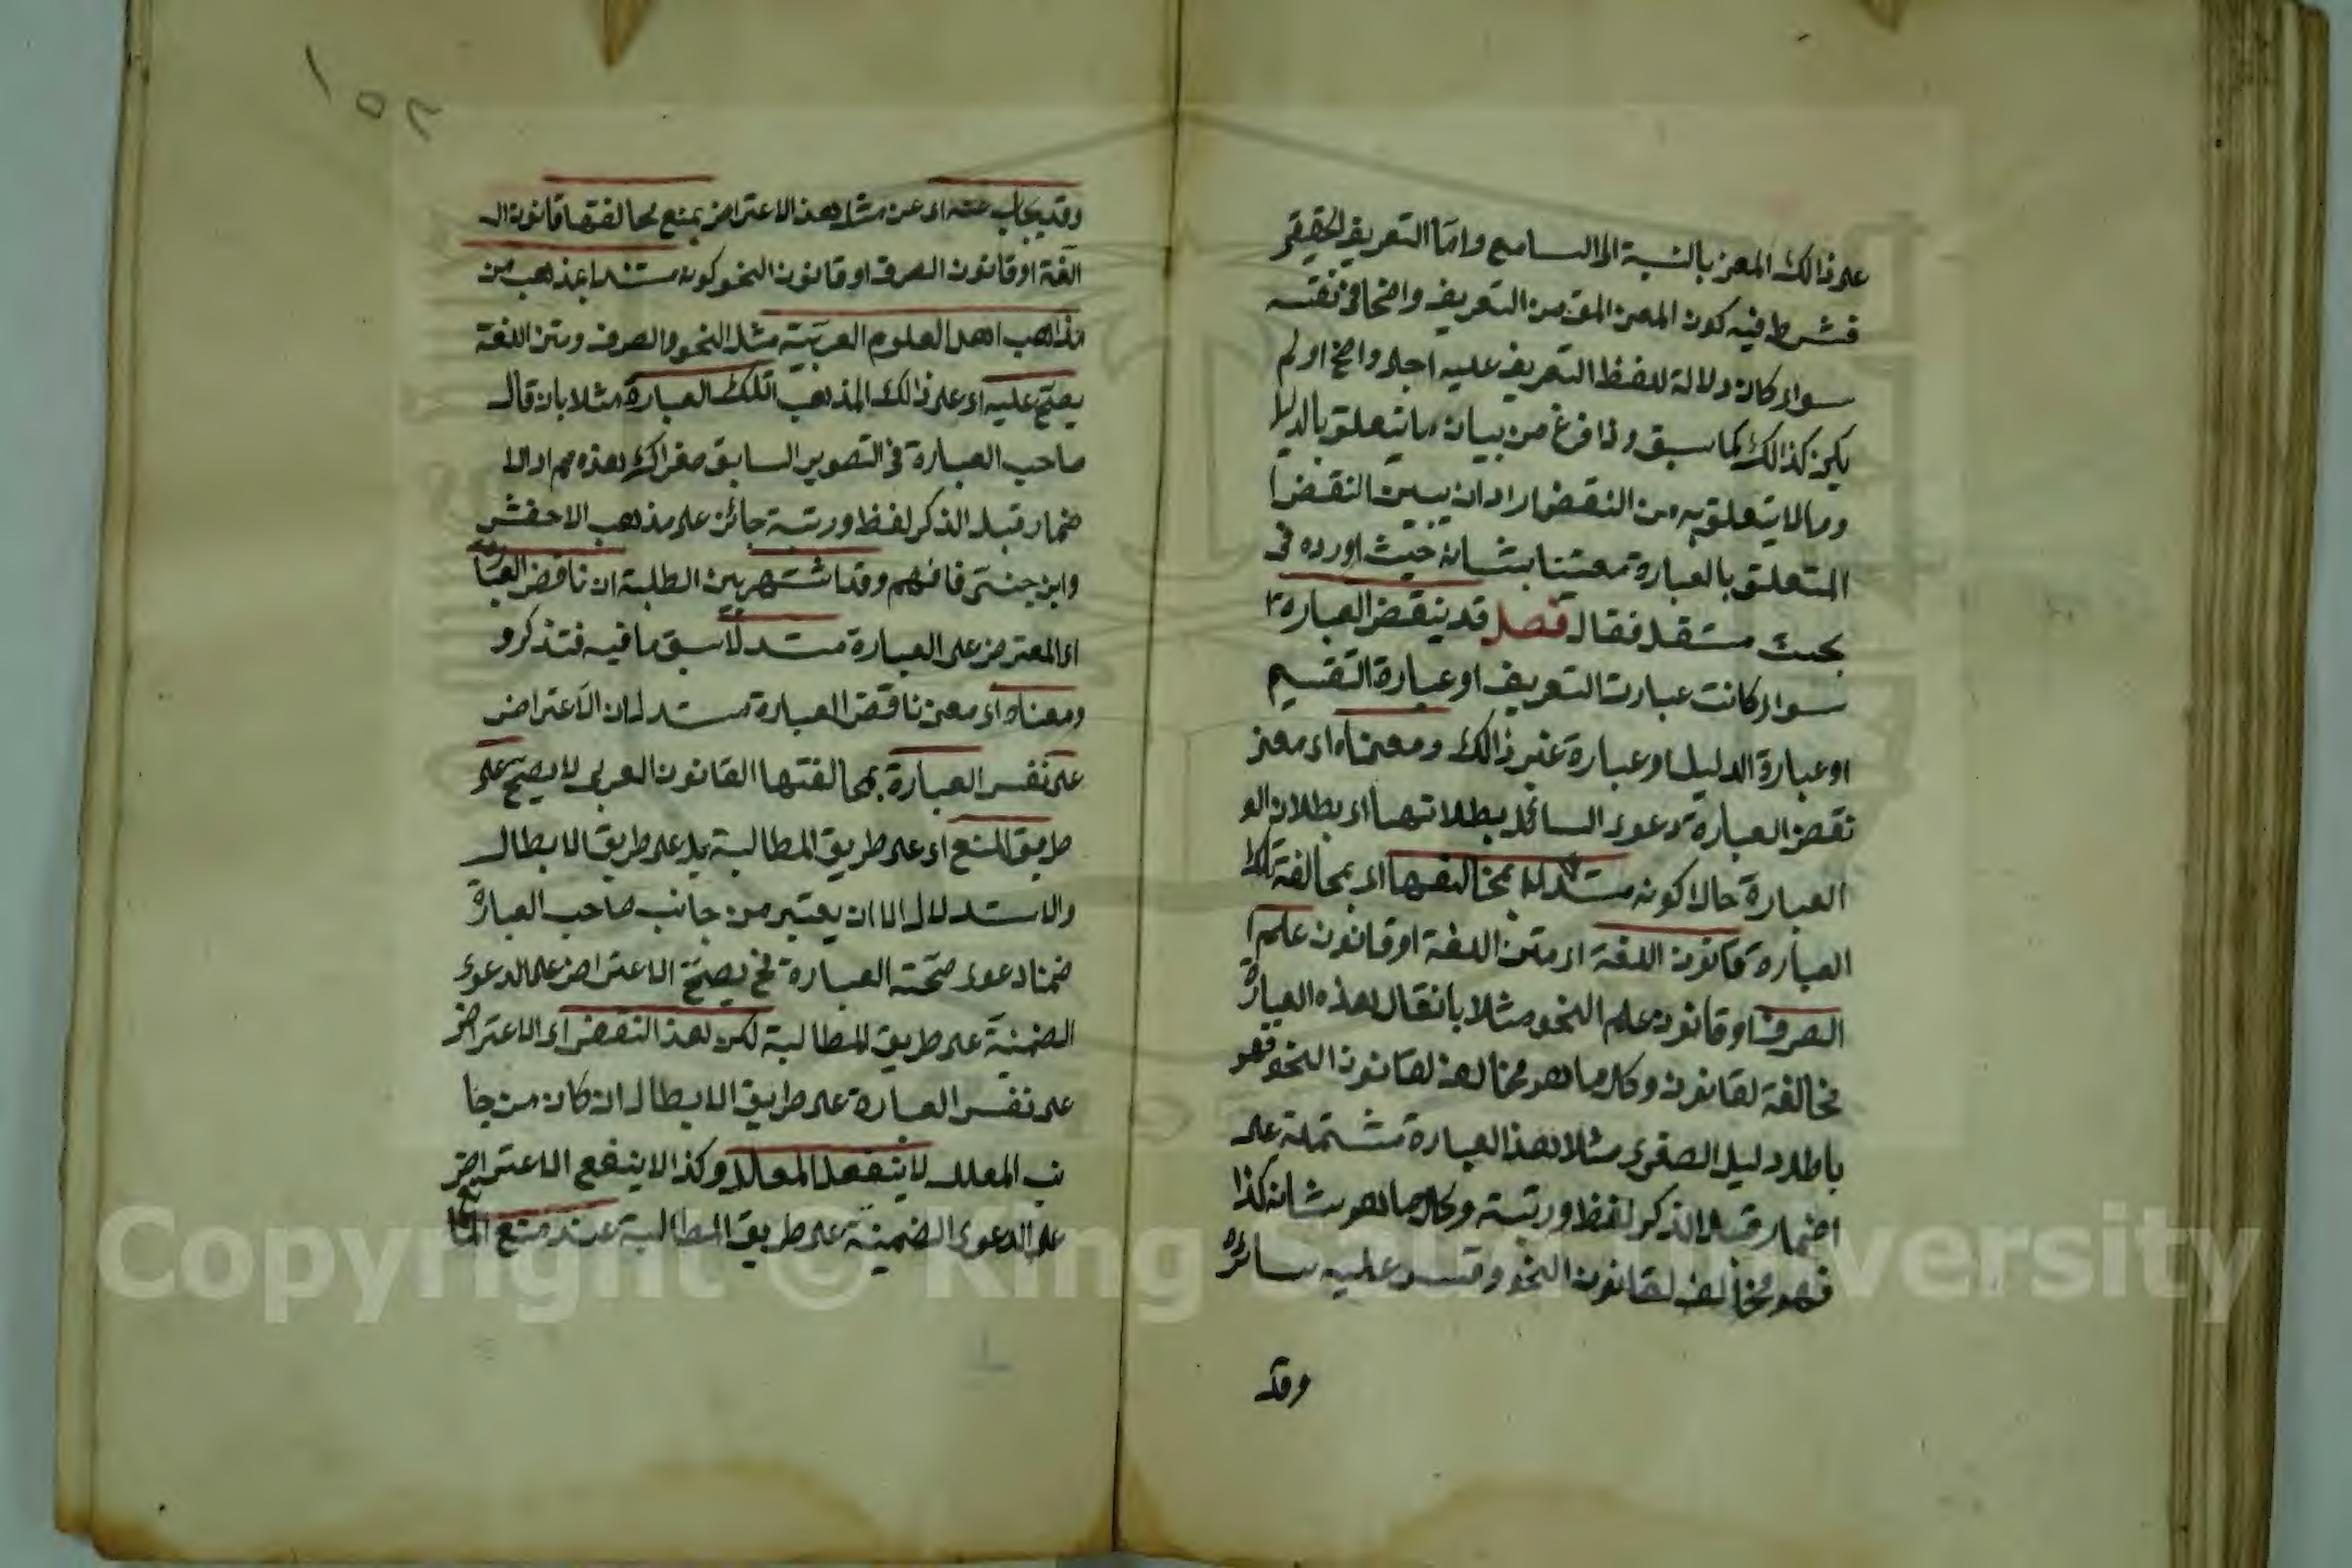 على ذالك المعنى بالنسبة الى السامع واما التعريف الحقيقي
فشرط فيه كون المعنى المق من التعريف واضحا في نفسه
سواء كان دلالة للفظ التعريف عليه اجلى واضح او لم
يكن كذالك كما سبق ولما فرغ من بيان ما يتعلق بالدليل
وما لا يتعلق به من النقض اراد ان يبين النقض ا
المتعلق بالعبارة معتنا بشانه حيث اورده في
بحث مستقل فقال فصل قد ينقض العبارة
سواء كانت عبارت التعريف او عبارة التقسيم
او عبارة الدليل او عبارة غير ذالك ومعناه اى معنى
نقض العبارة دعوى السائل بطلانها اى بطلان الو
العبارة حال كونه مستدلا بمخالفها اى بمخالفة تلك
العبارة قانون اللغة اى متن اللغة او قانون علم ا
الصرف او قانون علم النحو مثلا بان قال هذه العبارة
مخالفة لقانون وكل ما هو مخالف لقانون النحو فهو
باطل دليل الصغرى مثلا هذا العبارة مشتملة على
اضمار قبل الذكر لفظا ورتبة وكل ما هو شانه كذا
فهو مخالف لقانون النحو وقس عليه سائره
وقد
١٥٢
وقد يجاب عنه اى عن مثل هذا الاعتراض بمنع مخالفتها قانون ال
الغة او قانون الصرف او قانون النحو كونه مستندا بمذهب من
مذاهب اهل العلوم العربية مثل النحو والصرف ومتن اللغة
يصح عليه اى على ذالك المذهب تلك العبارة مثلا بان قال
صاحب العبارة في التصوير السابق صغراك هذه مم اذ الا
ضمار قبل الذكر لفظا ورتبة جائز على مذهب الاخفش
وابن جنى فافهم وقد اشتهر بين الطلبة ان ناقض العبارة
اى المعترض على العبارة مستدل سبق ما فيه فتذكر و
ومعناه اى معنى ناقض العبارة مستدل ان الاعتراض
على نفس العبارة بمخالفتها القانون العربى لا يصح على
طريق المنع اى على طريق المطالبة بل على طريق الابطال
والاستدلال الا ان يعتبر من جانب صاحب العبارة
ضمنا دعوى صحة العبارة فح يصح الاعتراض على الدعوى
الضمنية على طريق المطالبة لكن هذا النقض اى الاعتراض
على نفس العبارة على طريق الابطال ان كان من جا
نب المعلل لا ينفع المعلل وكذا لا ينفع الاعتراض
على الدعوى الضمنية على طريق المطالبة عند منع المانع
Copyright © King Saud University